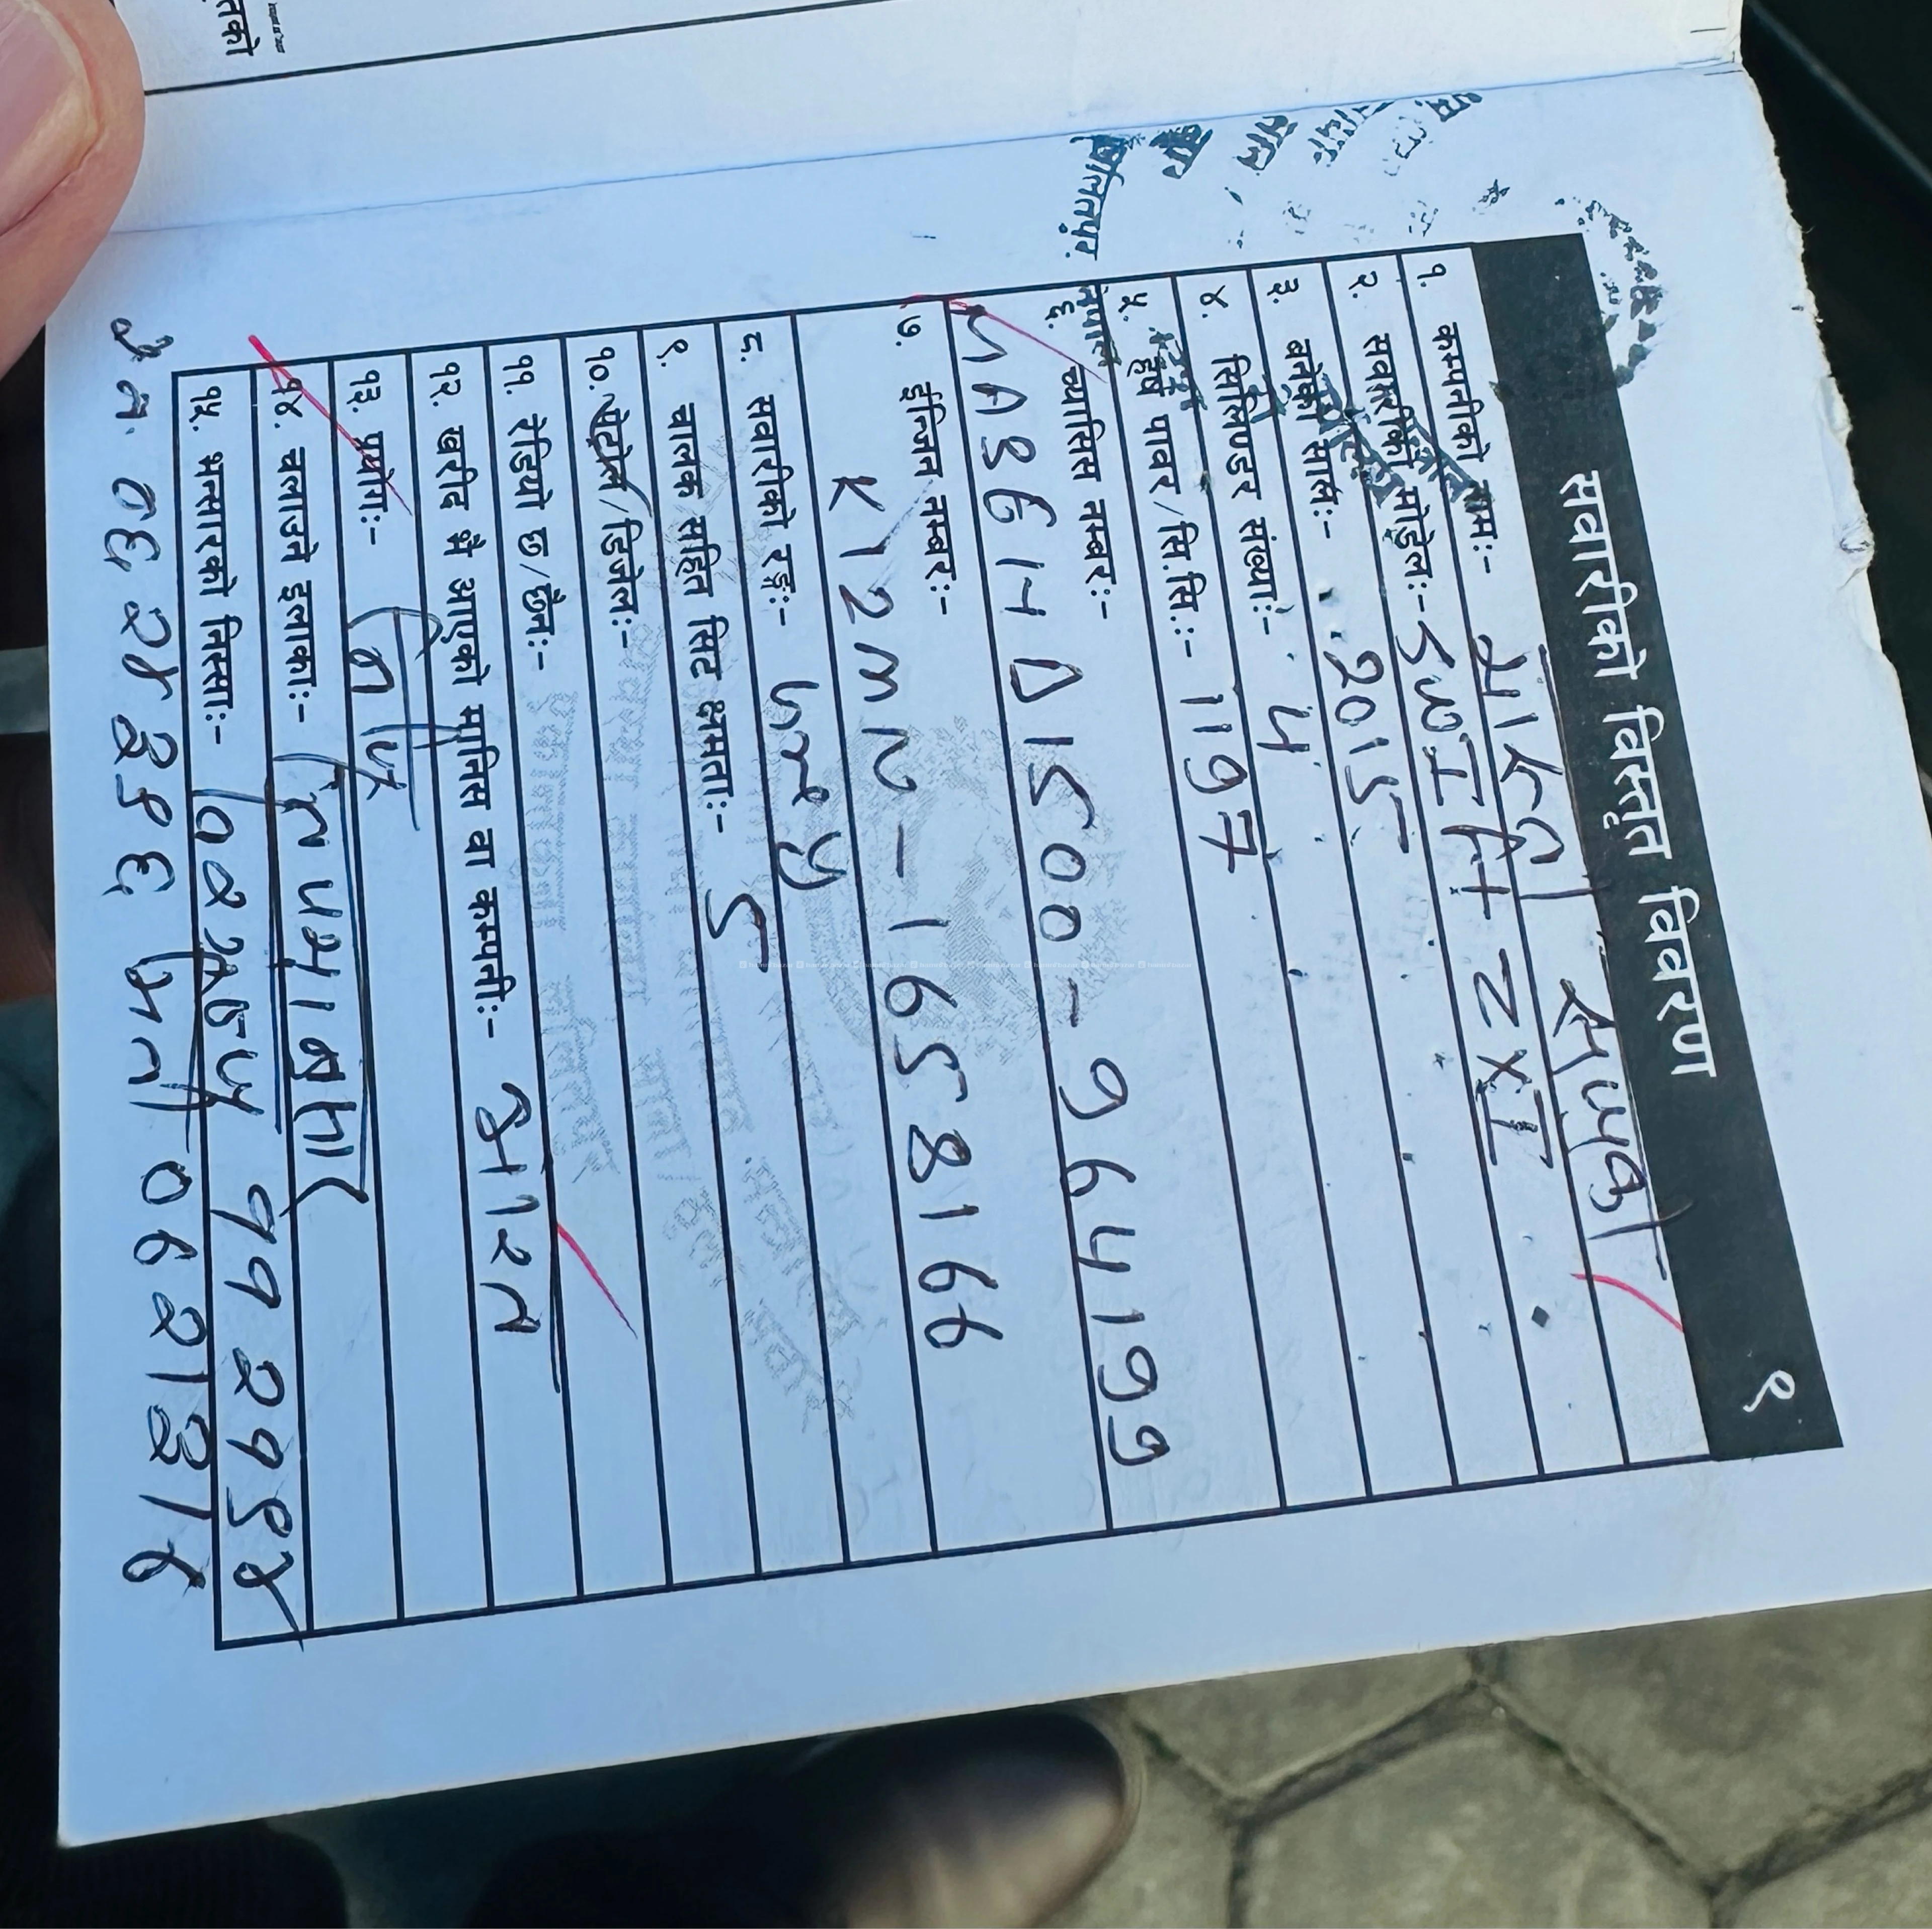 सवारीको विस्तृत विवरण १
१. कम्पनीको नाम:- मारुती सुजुकी
२. सवारीको मोडेल:- SWIFT ZXI
३. बनेको साल:- 2015
४. सिलिण्डर संख्या:- 4
५. हर्ष पावर/सि.सि.:- 1197
६. च्यासिस नम्बर:-
MA3FHEB1S00-964199
७. ईन्जिन नम्बर:-
K12MN-1658166
८. सवारीको रङ्ग:- Grey
९. चालक सहित सिट क्षमता:- 5
१०. पेट्रोल/डिजेल:-
११. रेडियो छ/छैन:-
१२. खरीद भै आएको मानिस वा कम्पनी:- भारत
१३. प्रयोग:- निजि
१४. चलाउने इलाका:- नेपालभर
१५. भन्सारको निस्सा:-
ललितपुर
नेपाल